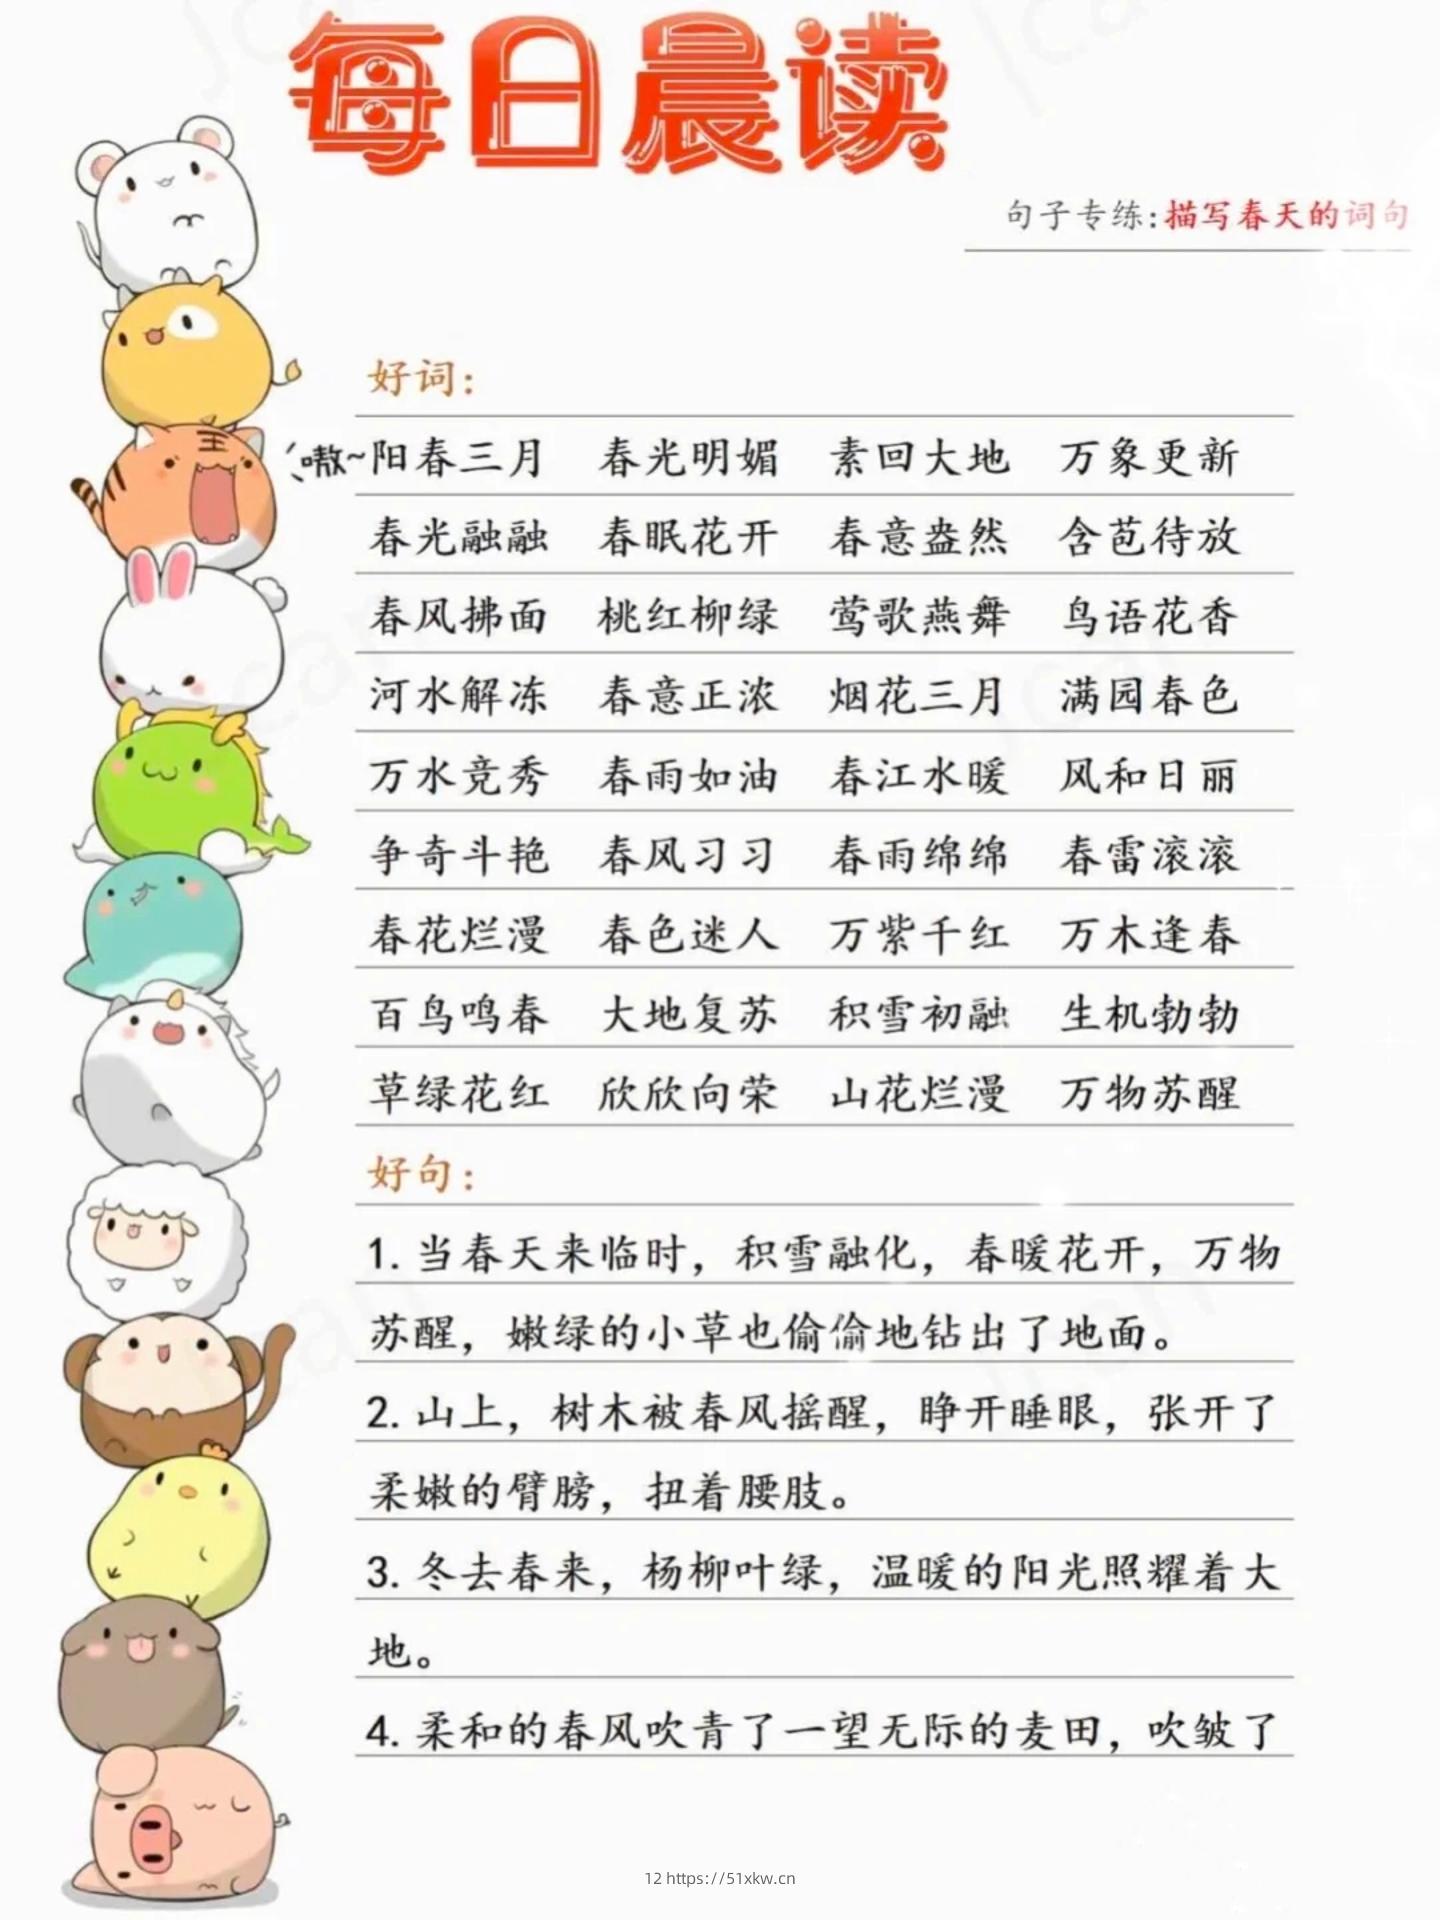 每日晨读
句子专练:描写春天的词句
好词:
嗷~
阳春三月 春光明媚 素回大地 万象更新
春光融融 春眠花开 春意盎然 含苞待放
春风拂面 桃红柳绿 莺歌燕舞 鸟语花香
河水解冻 春意正浓 烟花三月 满园春色
万水竞秀 春雨如油 春江水暖 风和日丽
争奇斗艳 春风习习 春雨绵绵 春雷滚滚
春花烂漫 春色迷人 万紫千红 万木逢春
百鸟鸣春 大地复苏 积雪初融 生机勃勃
草绿花红 欣欣向荣 山花烂漫 万物苏醒
好句:
1. 当春天来临时，积雪融化，春暖花开，万物
苏醒，嫩绿的小草也偷偷地钻出了地面。
2. 山上，树木被春风摇醒，睁开睡眼，张开了
柔嫩的臂膀，扭着腰肢。
3. 冬去春来，杨柳叶绿，温暖的阳光照耀着大
地。
4. 柔和的春风吹青了一望无际的麦田，吹皱了
12 https://51xkw.cn